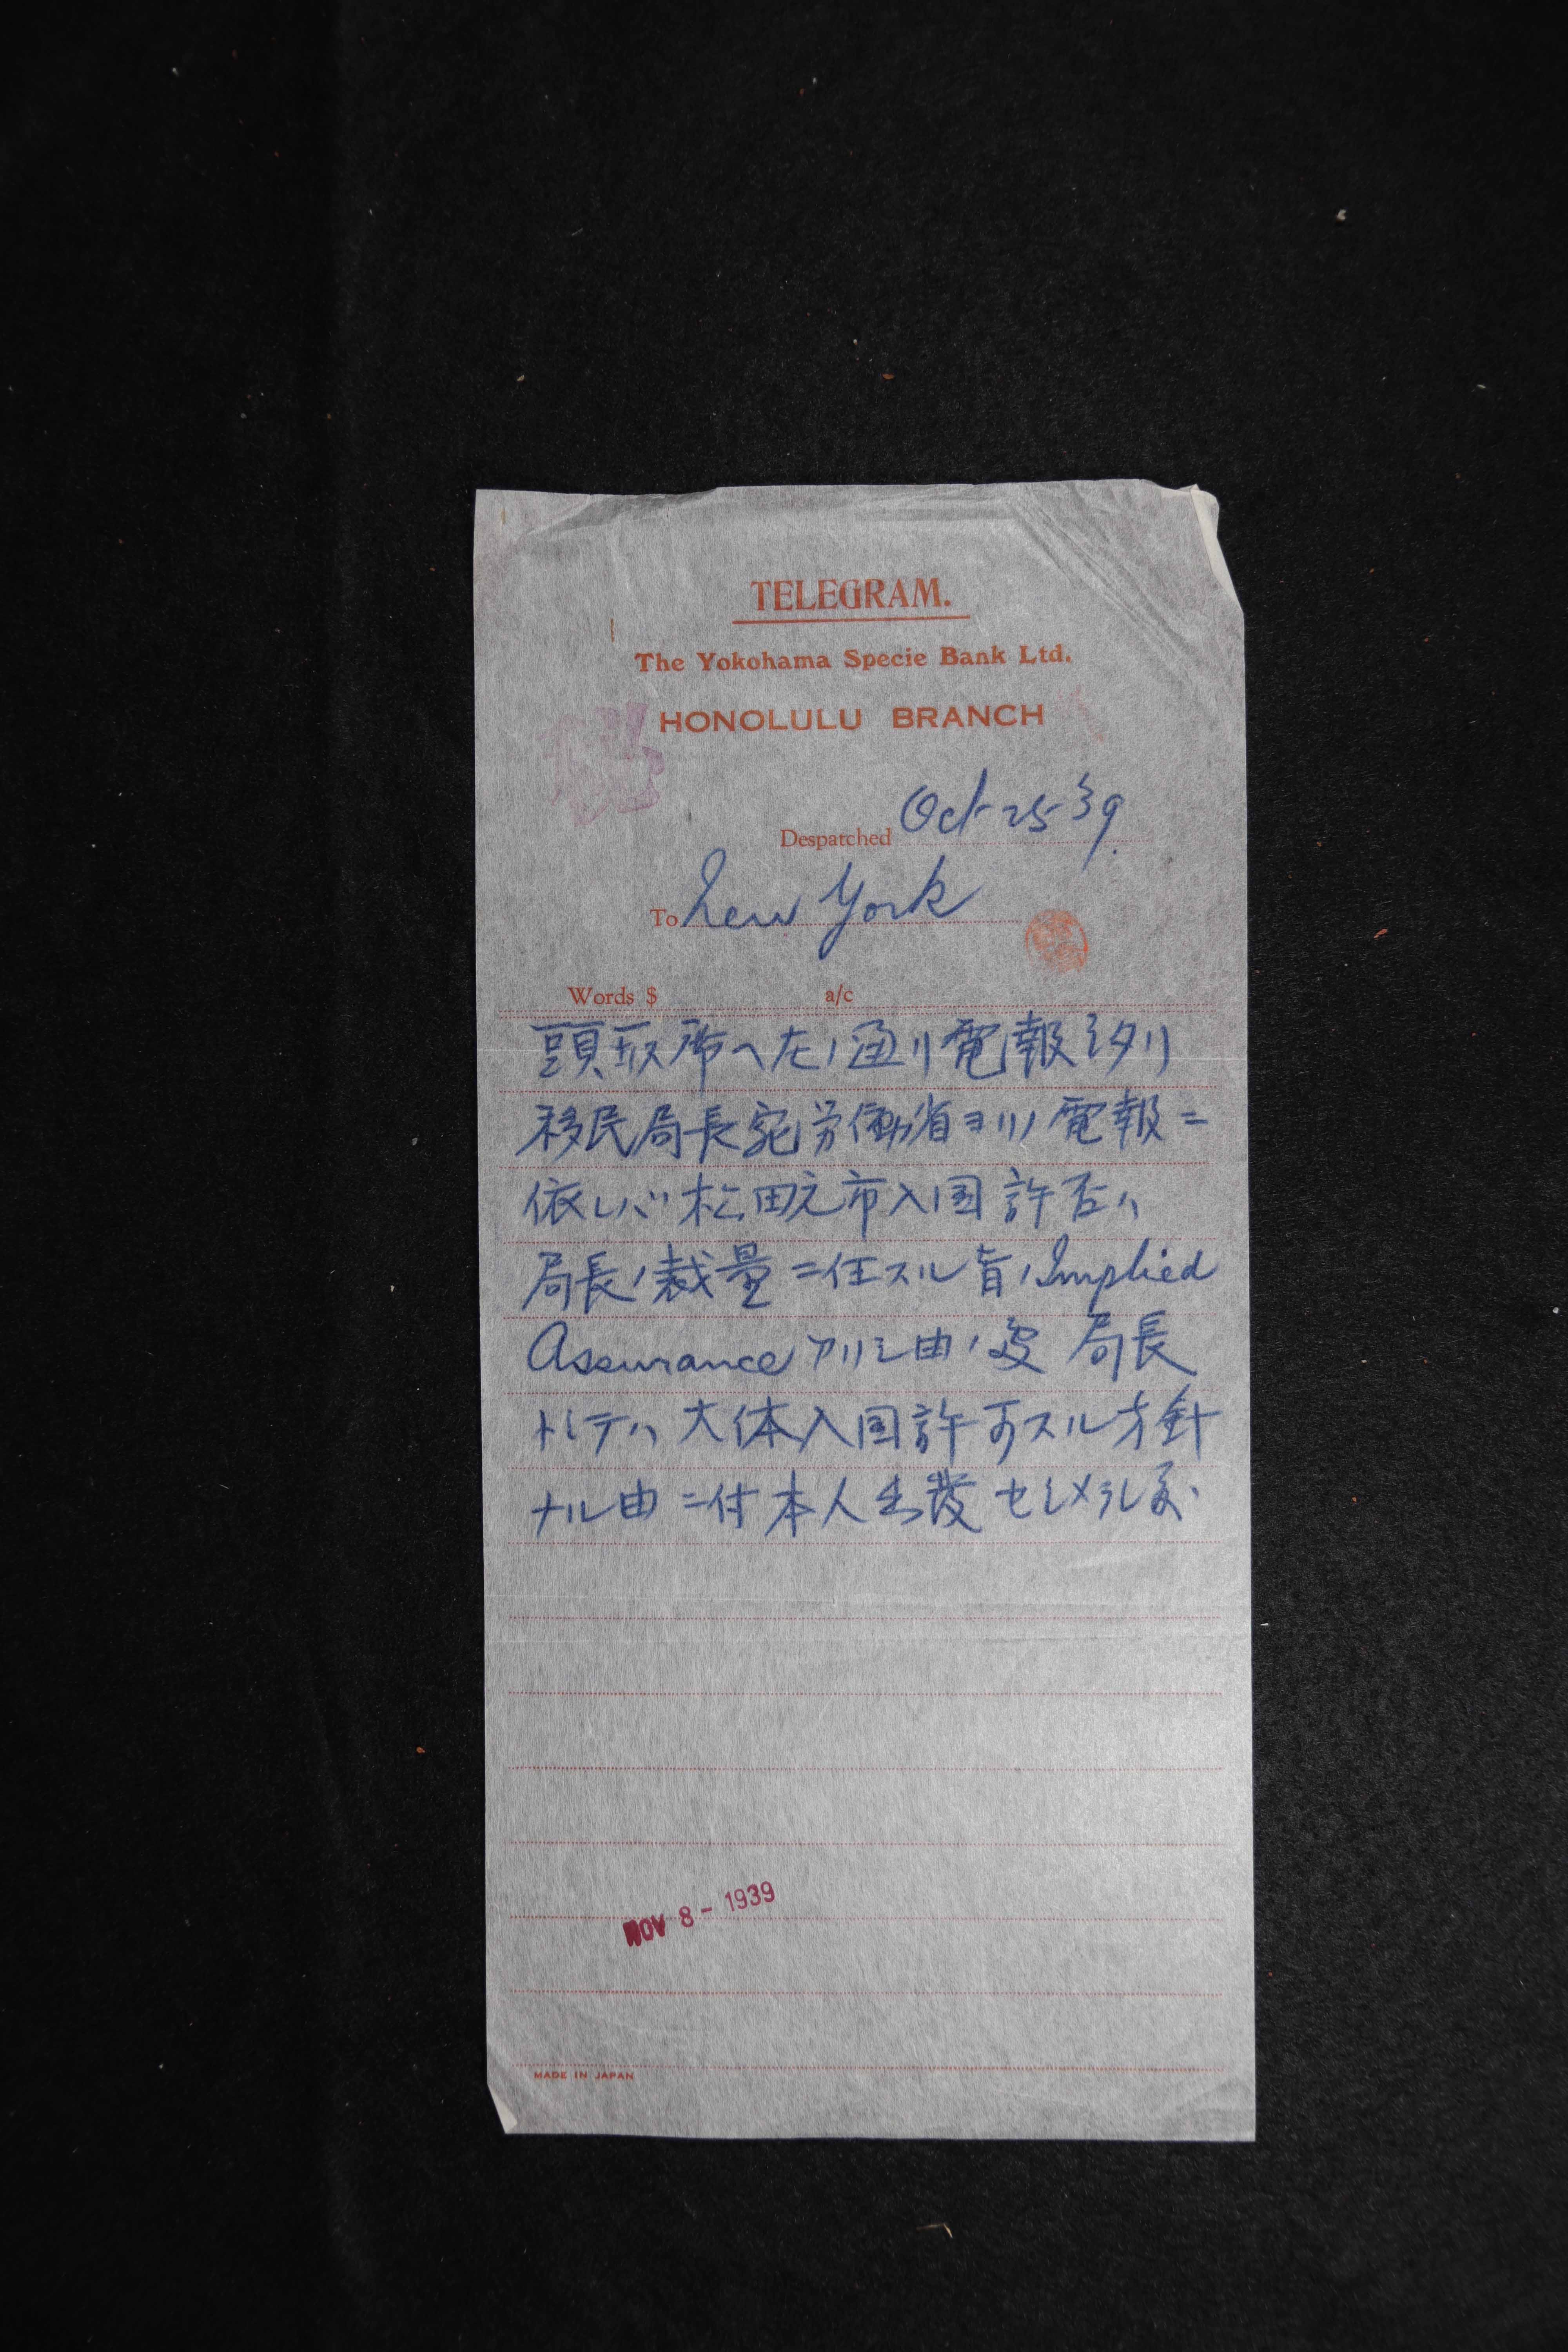 TELEGRAM.
The Yokohama Specie Bank Ltd.
HONOLULU BRANCH
Despatched Oct-25-39.
To New York
Words $ a/c
頭取席ヘ左ノ通リ電報シタリ
移民局長宛労働省ヨリノ電報ニ
依レバ松田元市入国許否ハ
局長ノ裁量ニ任スル旨ノImplied
Assuranceアリシ由ノ処 局長
トシテハ大体入国許可スル方針
ナル由ニ付本人出発セシメラレ度
NOV 8 - 1939
MADE IN JAPAN